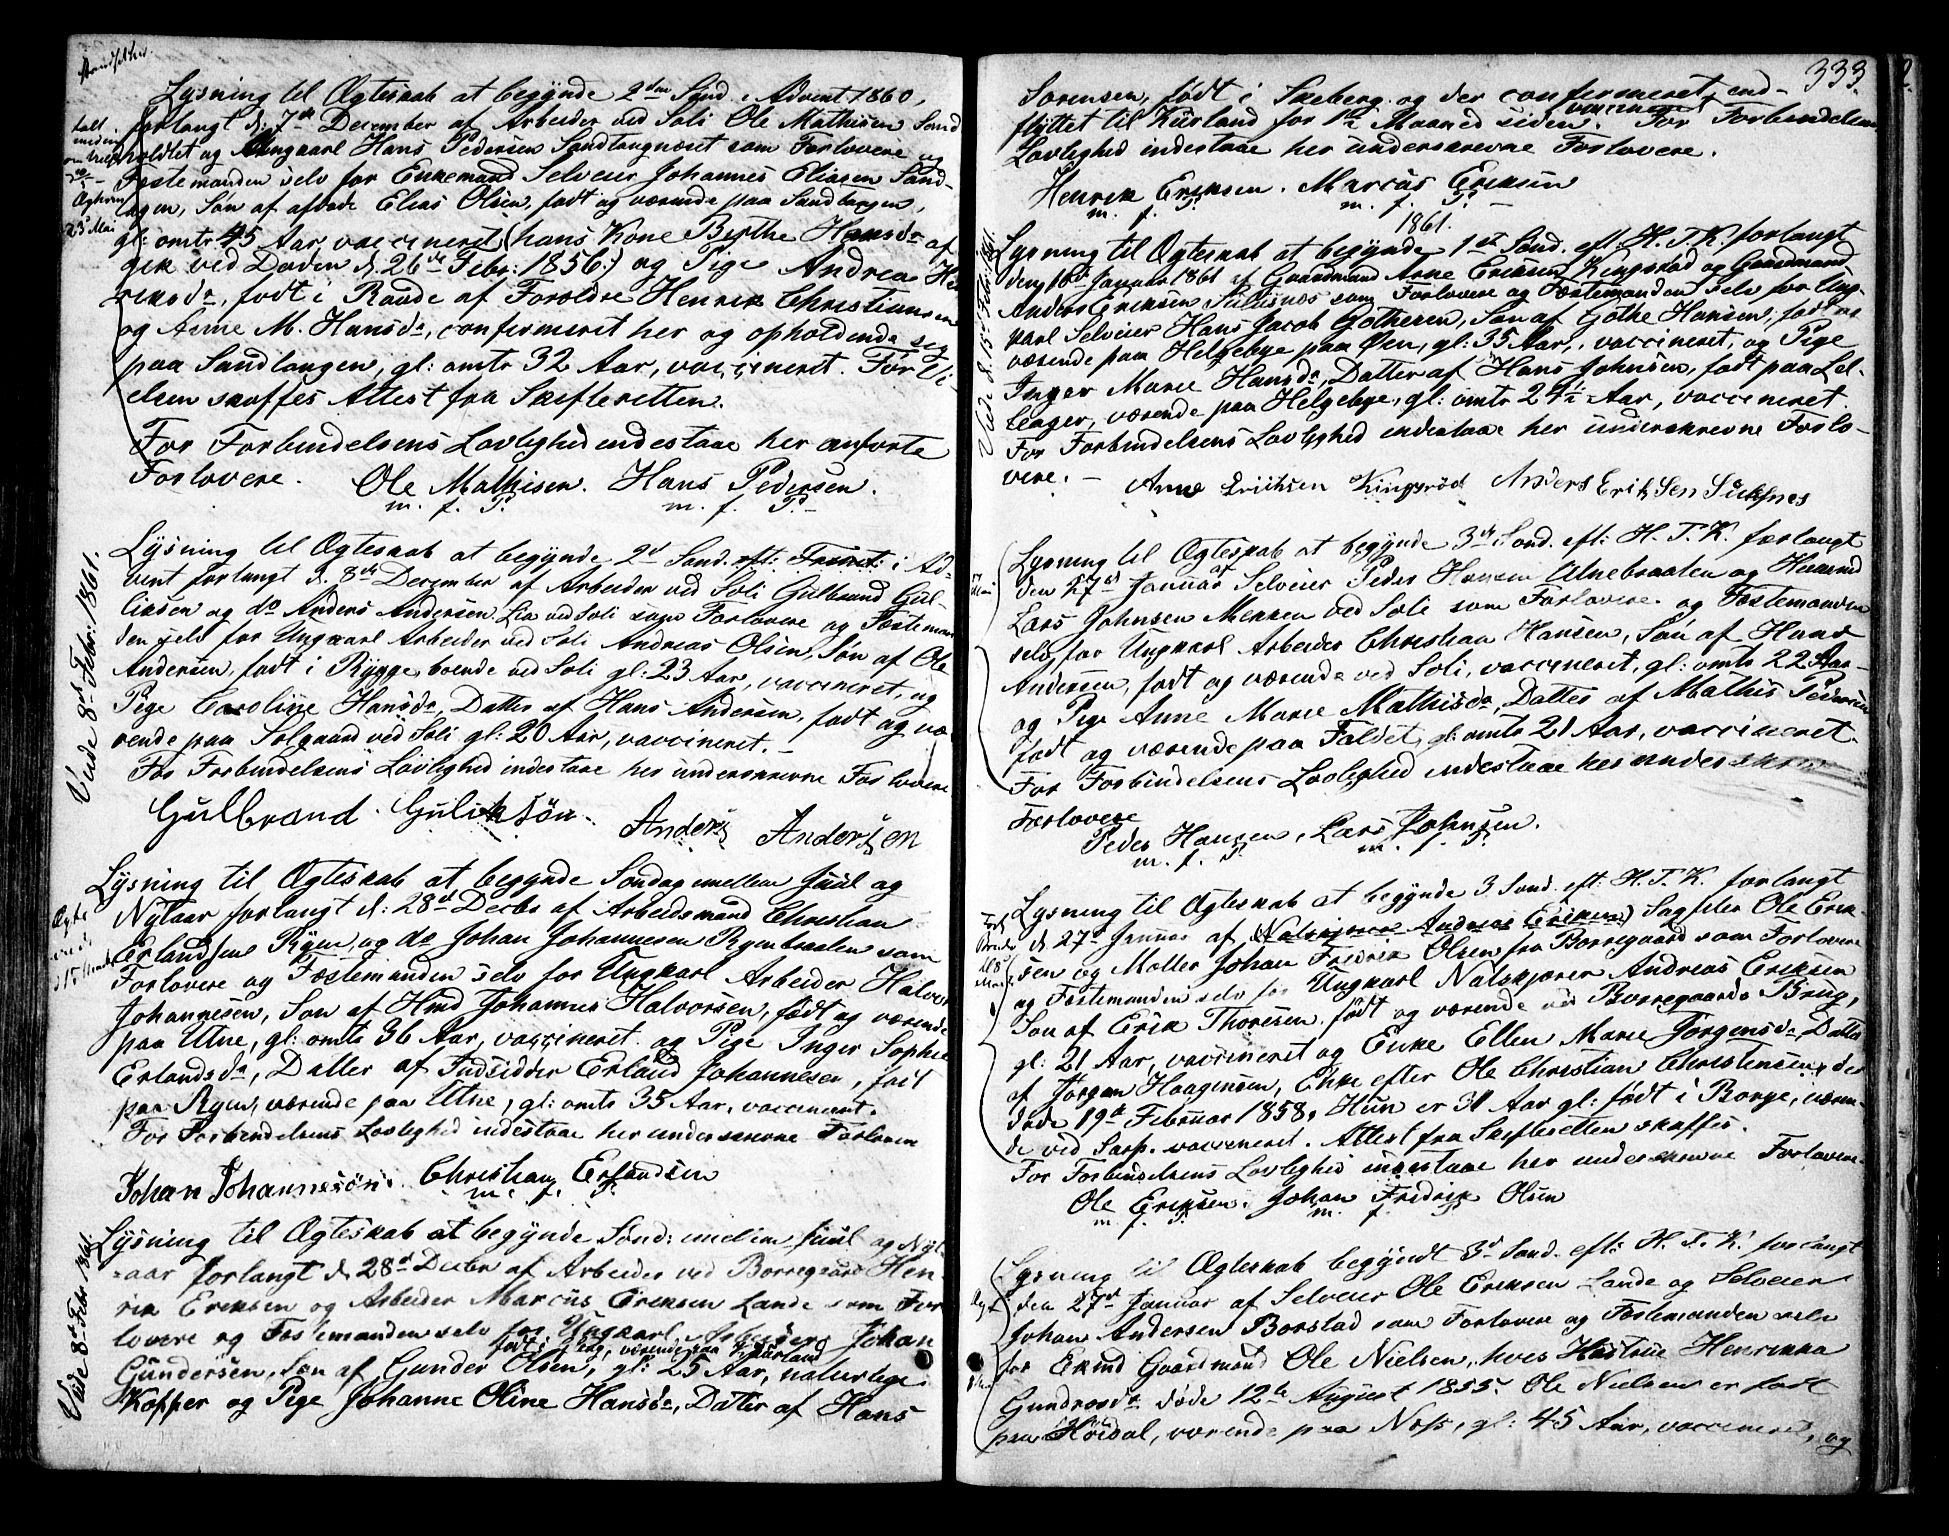 Lysning til Ægteskab at begynde 2den Sønd. Advent 1860,
forlangt d: 7de December af Arbeider ved Soli Ole Mathisen Sand
holdtet og Ungkarl Hans Pedersen Sandtangnæset som Forlovere og
Fæstemanden selv for Enkemand Selveier Johannes Eliasen Sand-
tangen, Søn af afdøde Elias Olsen, født og værende paa Sandtangen,
gl: omtr 45 Aar, vaccineret (hans Kone Birthe Hansdr af
gik ved Døden d. 26de Febr: 1856:) og Pige Andrea Hen
riksdr, født i Raade af Forældre Henrik Christiansen
og Anne M. Hansdr, confirmeret her og opholdende sig
paa Sandtangen, gl: omtr 32 Aar, vaccineret. Før Vi-
elsen skaffes Attest fra Skifteretten.
For Forbindelsens Lovlighed indestaae her anførte
Forlovere. Ole Mathisen. Hans Pedersen.
m. f. P. m. f. P.
Viede 8de Febr: 1861.
Lysning til Ægteskab at begynde 2d Sønd. eft: i Ad-
vent forlangt d. 8de December af Arbeider ved Soli Gulbrand Gul-
liksen og do Anders Andersen Lia ved Soli som Forlovere og Fæsteman
den selv for Ungkarl Arbeider ved Soli Andreas Olsen, Søn af Ole
Andersen, født i Rygge, boende ved Soli gl: 23 Aar, vaccineret, og
Pige Caroline Hansdr, Datter af Hans Andersen, født og væ-
rende paa Solgaard ved Soli gl: 20 Aar, vaccineret. –
For Forbindelsens Lovlighed indestaae her underskrevne Forlovere
Gulbrand Guliksøn Anders Andersen
Lysning til Ægteskab at begynde Søndag mellem Juul og
Nytaar forlangt d: 28d Decbr af Arbeidsmand Christian
Erlandsen Ryen, og do Johan Johannesen Ryenbraaten som
Forlovere og Fæstemanden selv for Ungkarl Arbeider Halvor
Johannesen, Søn af Hmd Johannes Halvorsen, født og værende
paa Utne, gl: omtr 36 Aar, vaccineret og Pige Inger Sophie
Erlandsdr, Datter af Indsidder Erland Johannesen, født
paa Ryen, værende paa Utne, gl: omtr 35 Aar, vaccineret.
For Forbindelsens Lovlighed indestaae her underskrevne Forlovere
Johan Johannesøn. Christian Erlandsen
m. f. P.
Viede 8de Febr 1861.
Lysning til Ægteskab at begynde Sønd: mellem Juul og Nyt-
aar forlangt d. 28d Decbr af Arbeider ved Borregaard Hen-
rik Eriksen og Arbeider Marcus Eriksen Lande som For
lovere og Fæstemanden selv for Ungkarl Arbeider Johan
født i værende paa Kurland
Gundersen, Søn af Gunder Olsen, gl: 25 Aar, naturlige
Kopper og Pige Johanne Oline Hansdr, Datter af Hans
333.
Sørensen, født i Skeberg og der confirmeret, ind-
vaccineret
flyttet til Kurland for 1de Maaned siden. For Forbindelsens
Lovlighed indestaae her underskrevne Forlovere.
Henrik Eriksen. Marcus Eriksen
m. f. P. m. f. P.
1861.
Viede d. 15de Febr: 1861.
Lysning til Ægteskab at begynde 1st Sønd. eft. H. T. K. forlangt
den 16de Januar 1861 af Gaardmand Arne Eriksen Kingsrød og Gaardmand
Anders Eriksen som Forlovere og Fæstemanden selv for Ung-
karl Selveier Hans Jacob Gothesen, Søn af Gothe Hansen, født og
værende paa Helgebye paa Øen, gl: 35 Aar, vaccineret, og Pige
Inger Marie Hansdr, Datter af Hans Johnsen, født paa Lel-
enger, værende paa Helgebye, gl: omtr 24½ Aar, vaccineret.
For Forbindelsens Lovlighed indestaae her underskrevne Forlo-
vere. – Arne Eriksen Kingsrød Anders Eriksen
Lysning til Ægteskab at begynde 3de Sønd. eft: H. T. K. forlangt
den 27d Januar af Selveier Peder Hansen Utnebraaten og Husmand
Lars Johnsen Menken ved Soli som Forlovere og Fæstemanden
selv for Ungkarl Arbeider Christian Hansen, Søn af Hans
Andersen, født og værende ved Soli, vaccineret, gl: omtr 22 Aar –
og Pige Anne Marie Mathisdr, Datter af Mathis Pedersen
født og værende paa Faldet, gl: omtr 21 Aar, vaccineret.
For Forbindelsens Lovlighed indestaae her underskrevne
Forlovere
Peder Hansen, Lars Johnsen.
m. f. P. m. f. P.
Lysning til Ægteskab at begynde 3 Sønd. eft: H. T. K. forlangt
d. 27d Januar af (Natskjører Andreas Eriksen) Sagfører Ole Erik-
sen og Møller Johan Fredrik Olsen fra Borregaard som Forlovere
og Fæstemanden selv for Ungkarl Natskjører Andreas Eriksen
Søn af Erik Thoresen født og værende ved Borregaards Brug,
gl: 21 Aar, vaccineret og Enke Ellen Marie Jørgensdr, Datter
af Jørgen Haagensen, Enke efter Ole Christian Christensen, der
døde 19de Februar 1858, Hun er 31 Aar gl: født i Borge, væren-
de ved Sarp. vaccineret. Attest fra Skifteretten skaffes.
For Forbindelsens Lovlighed indestaae her underskrevne Forlovere.
Ole Eriksen. Johan Fredrik Olsen
m. f. P. m. f. P.
Lysning til Ægteskab begyndt 3d Sønd. eft: H. T. K. forlangt
den 27d Januar af Selveier Ole Eriksen Lande og Selveier
Johan Andersen Borstad som Forlovere og Fæstemanden selv
for Ekmd Gaardmand Ole Nielsen, hvis Hustrue Henrikka
Gundrosdr døde 12te August 1855. Ole Nielsen er født
paa Høidal, værende paa Næss, gl: 45 Aar, vaccineret, og